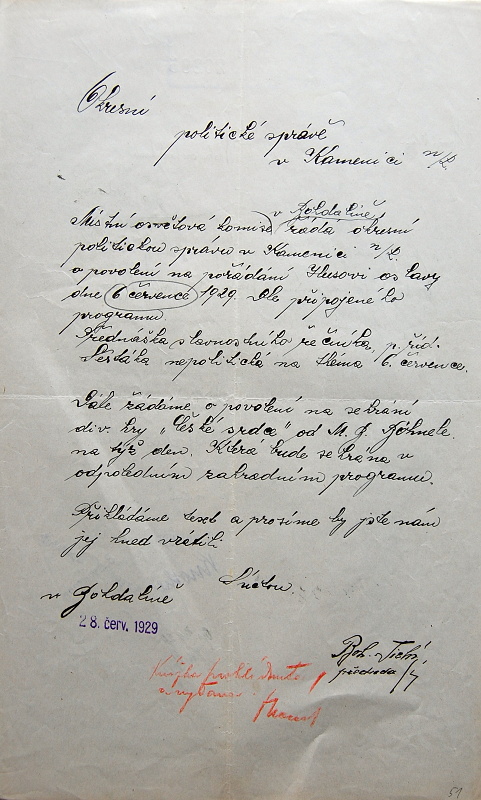 Okresní
politické správě
v Kamenici n/L.
v Bohdalíně
Místní osvětová komise žádá okresní
politickou správu v Kamenici n/L.
o povolení na pořádání Husovi oslavy
dne 6 července 1929. Dle připojeného
programu.
Přednáška slavnostního řečníka, p. říd.
Šestáka nepolitická na théma 6. července.
Dále žádáme o povolení na sehrání
div. hry "České srdce" od M. J. Böhnela.
na týž den. Která bude sehrána v
odpoledním zahradním programu.
Přikládáme text a prosíme by jste nám
jej hned vrátili
Súctou.
v Bohdalíně
28. červ. 1929
Boh. Tichý
předseda
51